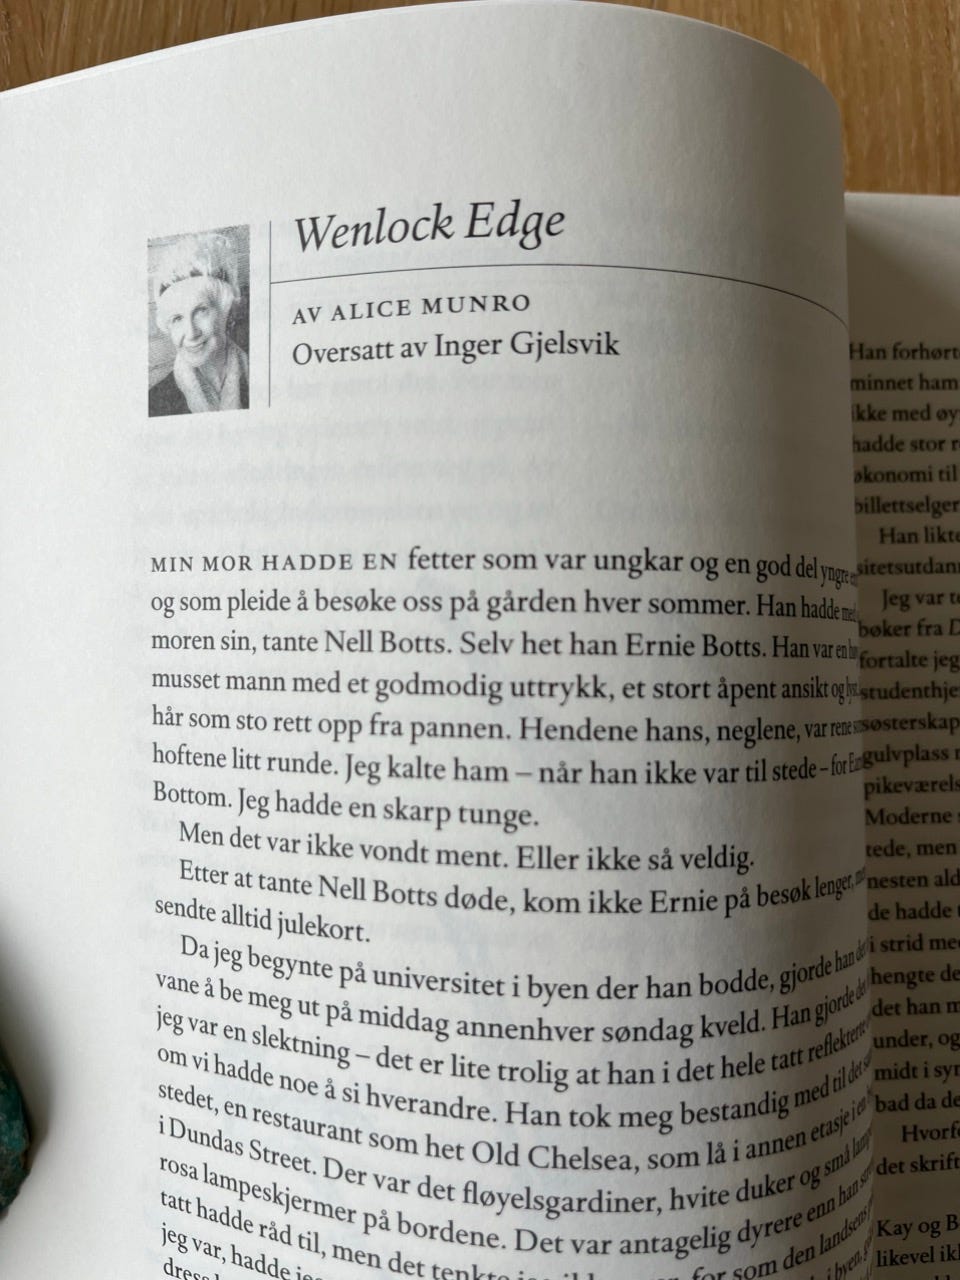 Wenlock Edge
AV ALICE MUNRO
Oversatt av Inger Gjelsvik
MIN MOR HADDE EN fetter som var ungkar og en god del yngre
og som pleide å besøke oss på gården hver sommer. Han hadde med
moren sin, tante Nell Botts. Selv het han Ernie Botts. Han var en
musset mann med et godmodig uttrykk, et stort åpent ansikt og
hår som sto rett opp fra pannen. Hendene hans, neglene, var rene
hoftene litt runde. Jeg kalte ham – når han ikke var til stede – for
Bottom. Jeg hadde en skarp tunge.
Men det var ikke vondt ment. Eller ikke så veldig.
Etter at tante Nell Botts døde, kom ikke Ernie på besøk lenger,
sendte alltid julekort.
Da jeg begynte på universitet i byen der han bodde, gjorde han
vane å be meg ut på middag annenhver søndag kveld. Han gjorde
jeg var en slektning – det er lite trolig at han i det hele tatt reflekterte
om vi hadde noe å si hverandre. Han tok meg bestandig med til det
stedet, en restaurant som het Old Chelsea, som lå i annen etasje i
i Dundas Street. Der var det fløyelsgardiner, hvite duker og små
rosa lampeskjermer på bordene. Det var antagelig dyrere enn han
tatt hadde råd til, men det tenkte
jeg var, hadde for som den landsens
Han forhørt
minnet ham
ikke med øy
hadde stor
økonomi til
billettselger
Han likte
sitetsutdan
Jeg var
bøker fra
fortalte jeg
studenthje
søsterskap
gulvplass
pikeværels
Moderne
tede, men
nesten ald
de hadde
i strid me
hengte de
det han
under, og
midt i
bad da de
Hvorfo
det skrift
Kay og B
likevel ik